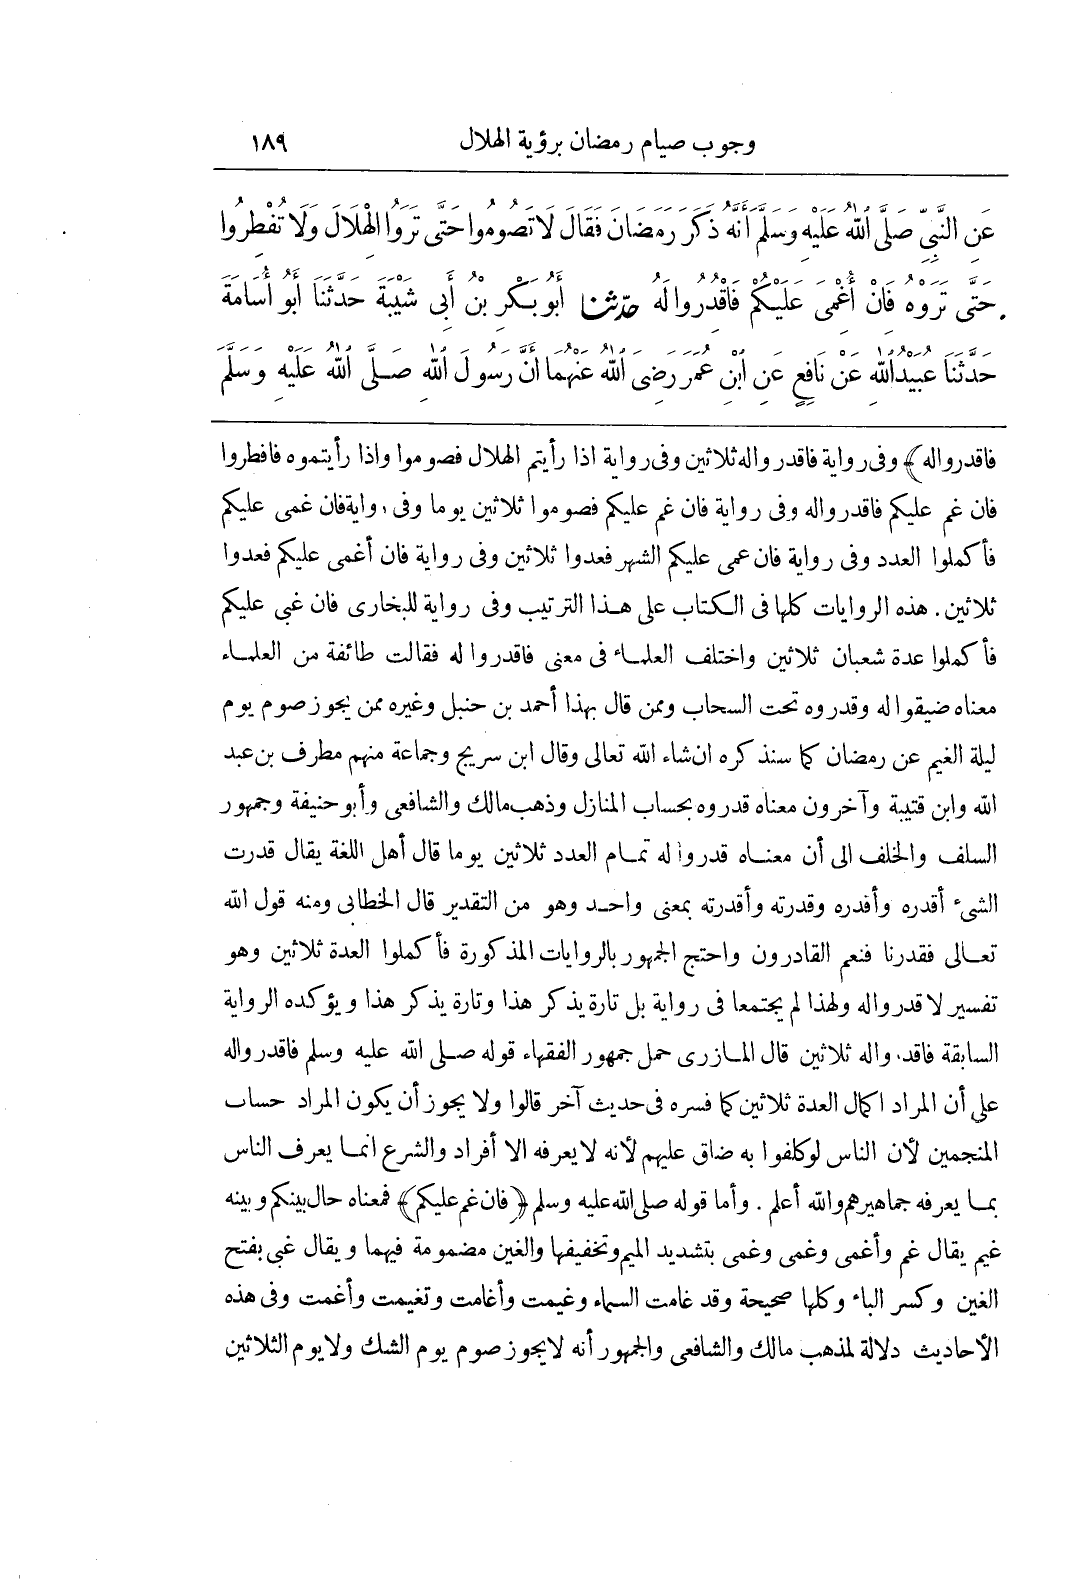 وجوب صيام رمضان برؤية الهلال ١٨٩
عَنِ النَّبِيِّ صَلَّى اللهُ عَلَيْهِ وَسَلَّمَ أَنَّهُ ذَكَرَ رَمَضَانَ فَقَالَ لَا تَصُومُوا حَتَّى تَرَوُا الْهِلَالَ وَلَا تُفْطِرُوا
حَتَّى تَرَوْهُ فَانْ أُغْمِىَ عَلَيْكُمْ فَاقْدِرُوا لَهُ حدثنا أَبُو بَكْرِ بْنُ أَبِى شَيْبَةَ حَدَّثَنَا أَبُو أُسَامَةَ
حَدَّثَنَا عُبَيْدُ اللهِ عَنْ نَافِعٍ عَنِ ابْنِ عُمَرَ رَضِىَ اللهُ عَنْهُمَا أَنَّ رَسُولَ اللهِ صَلَّى اللهُ عَلَيْهِ وَسَلَّمَ
فاقدروا له ﴾ وفى رواية فاقدروا له ثلاثين وفى رواية اذا رأيتم الهلال فصوموا واذا رأيتموه فافطروا
فان غم عليكم فاقدروا له وفى رواية فان غم عليكم فصوموا ثلاثين يوما وفى رواية فان غمى عليكم
فأكملوا العدد وفى رواية فان عمى عليكم الشهر فعدوا ثلاثين وفى رواية فان أغمى عليكم فعدوا
ثلاثين . هذه الروايات كلها فى الكتاب على هذا الترتيب وفى رواية للبخارى فان غبى عليكم
فأكملوا عدة شعبان ثلاثين واختلف العلماء فى معنى فاقدروا له فقالت طائفة من العلماء
معناه ضيقوا له وقدروه تحت السحاب وممن قال بهذا أحمد بن حنبل وغيره ممن يجوز صوم يوم
ليلة الغيم عن رمضان كما سنذكره ان شاء الله تعالى وقال ابن سريج وجماعة منهم مطرف بن عبد
الله وابن قتيبة وآخرون معناه قدروه بحساب المنازل وذهب مالك والشافعى وأبو حنيفة وجمهور
السلف والخلف الى أن معناه قدروا له تمام العدد ثلاثين يوما قال أهل اللغة يقال قدرت
الشىء أقدره وأفدره وقدرته وأقدرته بمعنى واحد وهو من التقدير قال الخطابى ومنه قول الله
تعالى فقدرنا فنعم القادرون واحتج الجمهور بالروايات المذكورة فأكملوا العدة ثلاثين وهو
تفسير لاقدروا له ولهذا لم يجتمعا فى رواية بل تارة يذكر هذا وتارة يذكر هذا ويؤكده الرواية
السابقة فاقدروا له ثلاثين قال المازرى حمل جمهور الفقهاء قوله صلى الله عليه وسلم فاقدروا له
على أن المراد اكمال العدة ثلاثين كما فسره فى حديث آخر قالوا ولا يجوز أن يكون المراد حساب
المنجمين لأن الناس لو كلفوا به ضاق عليهم لأنه لا يعرفه الا أفراد والشرع انما يعرف الناس
بما يعرفه جماهيرهم والله أعلم . وأما قوله صلى الله عليه وسلم ﴿ فان غم عليكم ﴾ فمعناه حال بينكم وبينه
غيم يقال غم وأغمى وغمى وغمى بتشديد الميم وتخفيفها والغين مضمومة فيهما ويقال غبى بفتح
الغين وكسر الباء وكلها صحيحة وقد غامت السماء وغيمت وأغامت وتغيمت وأغمت وفى هذه
الأحاديث دلالة لمذهب مالك والشافعى والجمهور أنه لا يجوز صوم يوم الشك ولا يوم الثلاثين